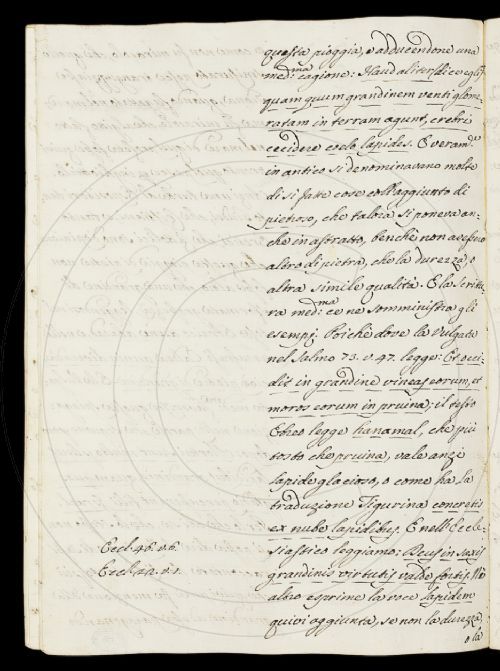 questa pioggia, e adducendone una
med:ma cagione: Haud aliter, dic'egli
quam quum grandinem venti glome-
ratam in terram agunt, crebri
cecidere coelo lapides. E veram.te
in antico si denominavano molte
di sì fatte cose coll'aggiunto di
pietroso, che talora si poneva an-
che in astratto, benchè non avessero
altro di pietra, che la durezza, o
altra simile qualità. E la Scrittu-
ra med:ma ce ne somministra gli
esempj. Poichè dove la Vulgata
nel Salmo 73. v. 47. legge: Et occi-
dit in grandine vineas eorum, et
moros eorum in pruina; il testo
Ebreo legge hanamal, che più
tosto che pruina, vale anzi
lapide glacioso, o come ha la
traduzione Tigurina concretis
ex nube lapidibus. E nell'Eccle-
siastico leggiamo: Deus in saxis
grandinis virtutis valde fortis. Nè
altro esprime la voce lapidem
quivi aggiunta, se non la durezza,
o la
Eccl. 46. v. 6.
Eccl.